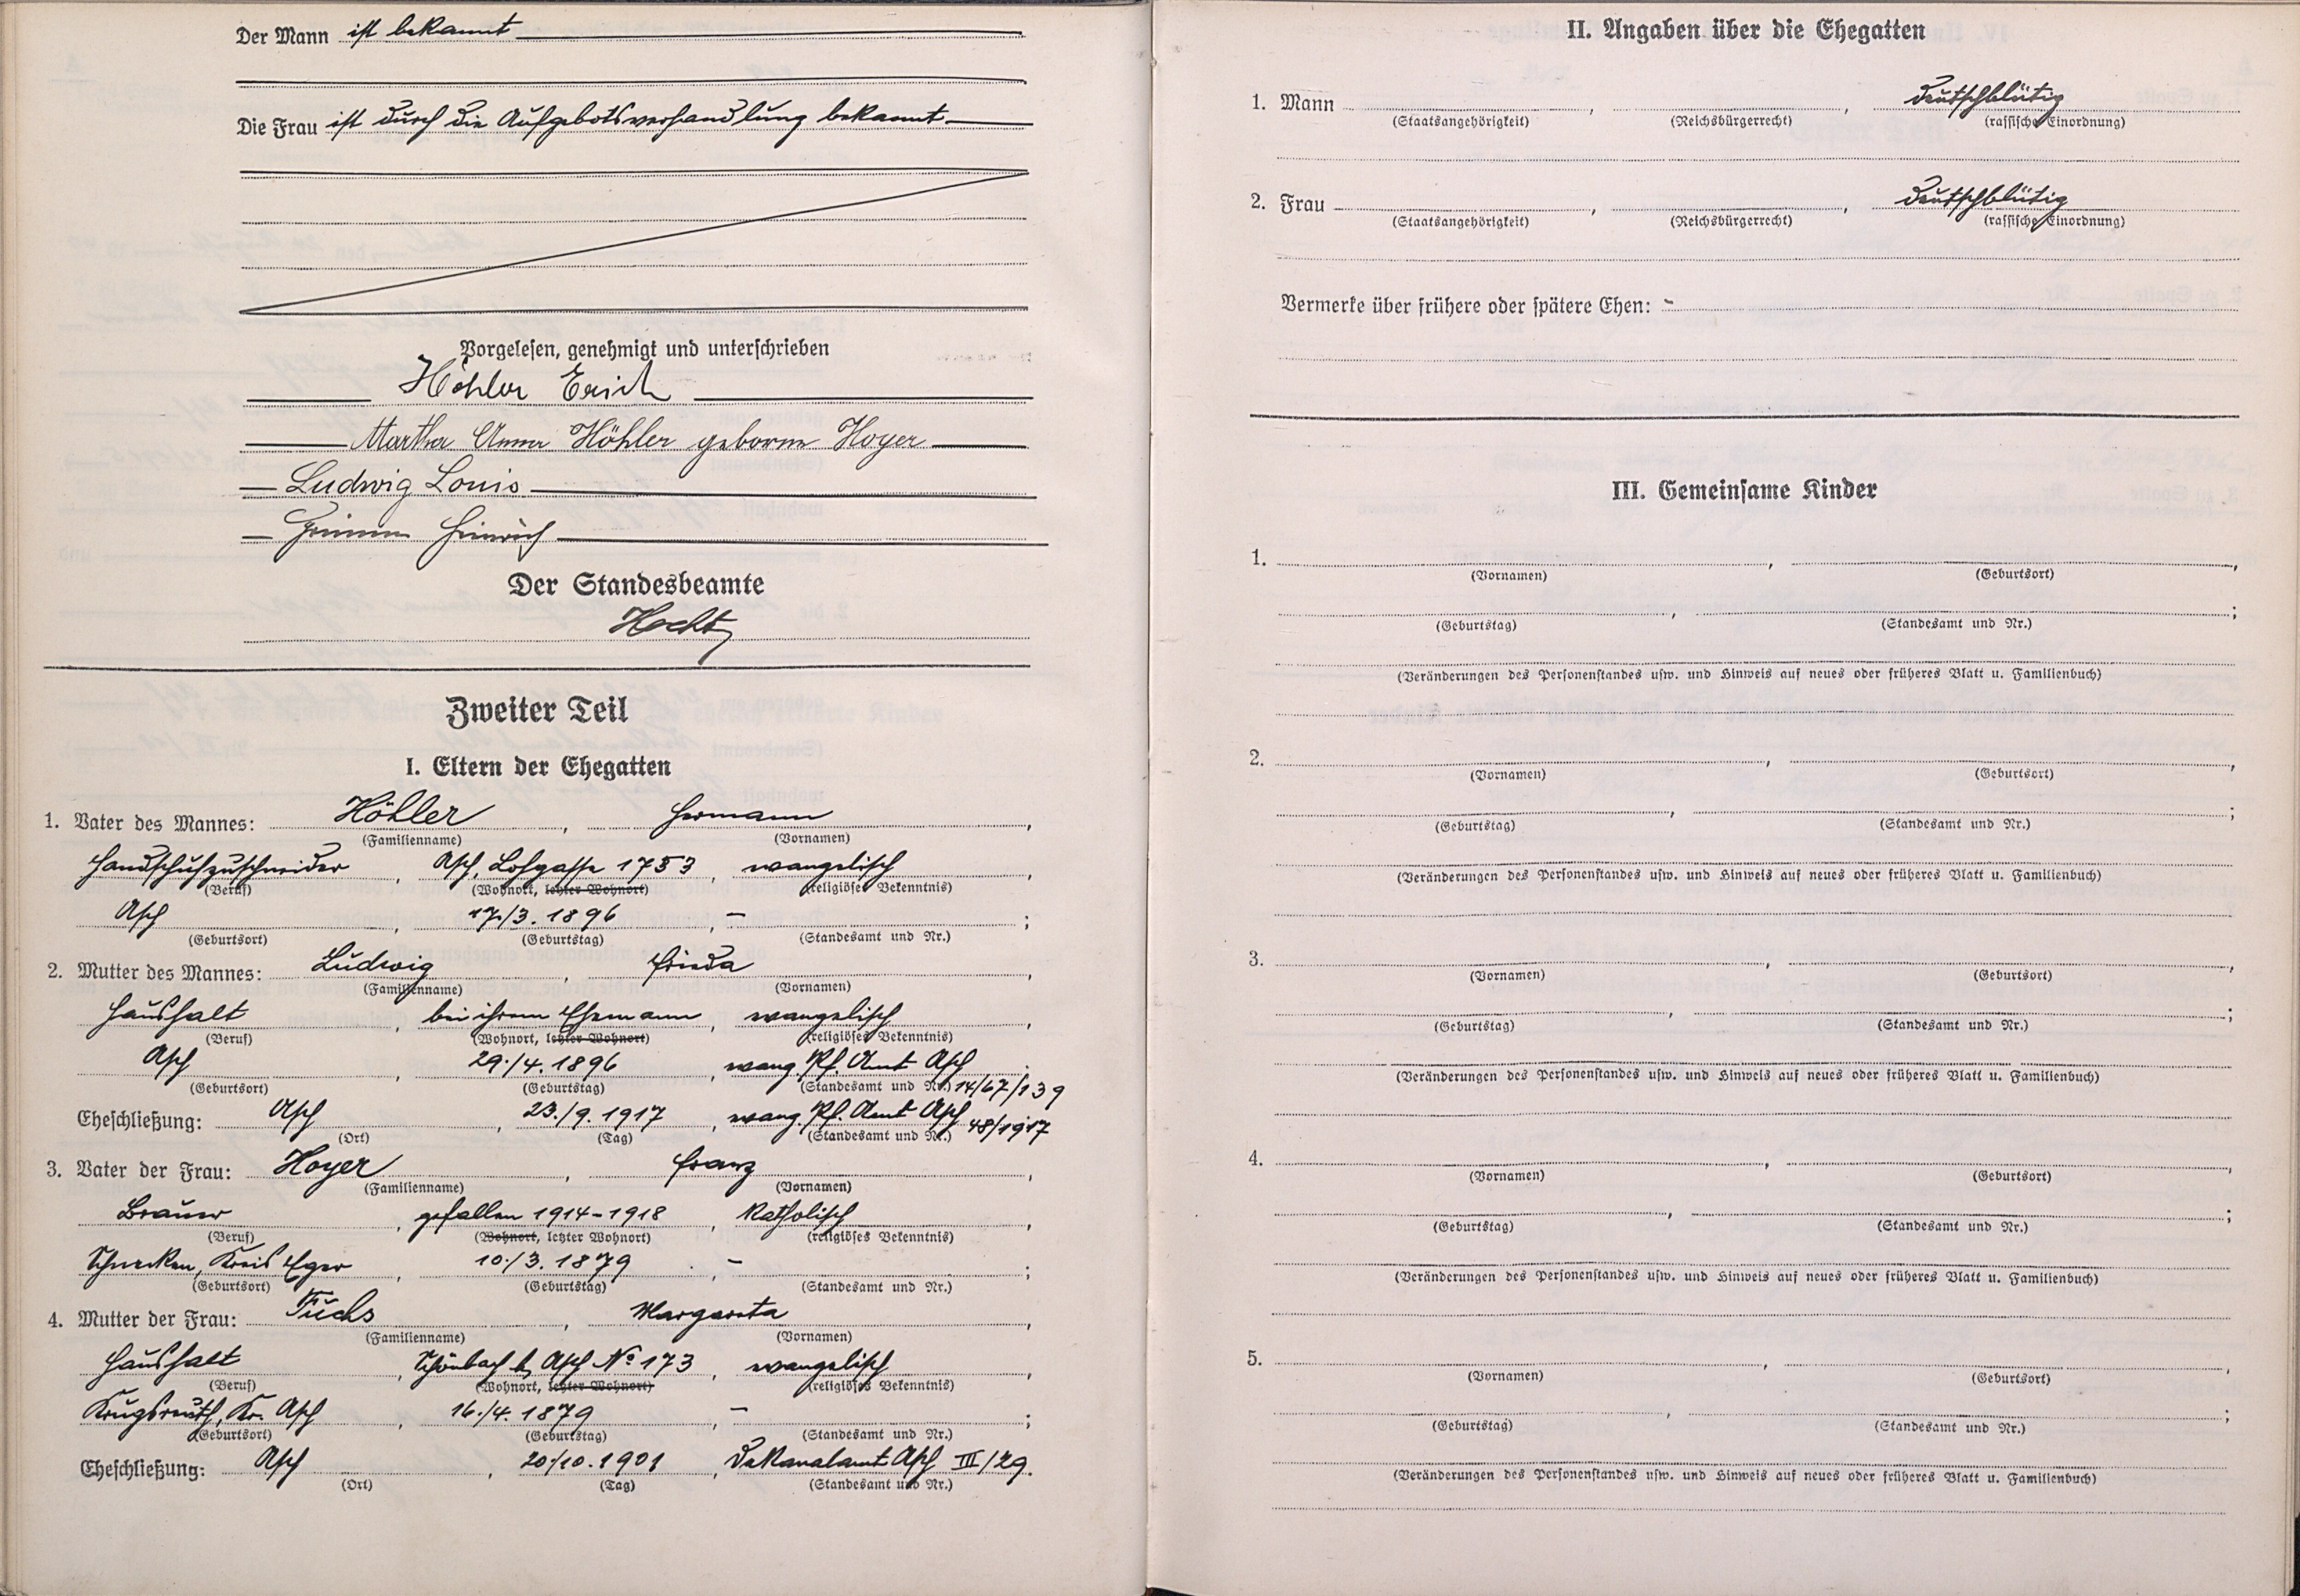 Der Mann ist bekannt
Die Frau ist durch die Aufgebotsverhandlung bekannt
Vorgelesen, genehmigt und unterschrieben
Höhler Erich
Martha Anna Höhler geborene Hoyer
Ludwig Louis
Grimm Heinrich
Der Standesbeamte
Hecht
Zweiter Teil
I. Eltern der Ehegatten
1. Vater des Mannes: Höhler, Hermann,
(Familienname) (Vornamen)
Handschuhzuschneider, Asch, Lohgasse 1753, evangelisch,
(Beruf) (Wohnort, letzter Wohnort) (religiöses Bekenntnis)
Asch, 17./3. 1896, – ;
(Geburtsort) (Geburtstag) (Standesamt und Nr.)
2. Mutter des Mannes: Ludwig, Frieda,
(Familienname) (Vornamen)
Haushalt, bei ihrem Ehemann, evangelisch,
(Beruf) (Wohnort, letzter Wohnort) (religiöses Bekenntnis)
Asch, 29./4. 1896, evang. Pf. Amt Asch ;
(Geburtsort) (Geburtstag) (Standesamt und Nr.) 14/67/139
Eheschließung: Asch, 23./9. 1917, evang. Pf. Amt Asch 48/1917
(Ort) (Tag) (Standesamt und Nr.)
3. Vater der Frau: Hoyer, Franz,
(Familienname) (Vornamen)
Brauer, gefallen 1914-1918, katholisch,
(Beruf) (Wohnort, letzter Wohnort) (religiöses Bekenntnis)
Schnecken, Kreis Eger, 10./3. 1879, – ;
(Geburtsort) (Geburtstag) (Standesamt und Nr.)
4. Mutter der Frau: Fuchs, Margareta,
(Familienname) (Vornamen)
Haushalt, Schönbach b. Asch No 173, evangelisch,
(Beruf) (Wohnort, letzter Wohnort) (religiöses Bekenntnis)
Krugsreuth, Kr. Asch, 16./4. 1879, – ;
(Geburtsort) (Geburtstag) (Standesamt und Nr.)
Eheschließung: Asch, 20./10. 1901, Dekanalamt Asch III/29.
(Ort) (Tag) (Standesamt und Nr.)
II. Angaben über die Ehegatten
1. Mann , , deutschblütig
(Staatsangehörigkeit) (Reichsbürgerrecht) (rassische Einordnung)
2. Frau , , deutschblütig
(Staatsangehörigkeit) (Reichsbürgerrecht) (rassische Einordnung)
Vermerke über frühere oder spätere Ehen: -
III. Gemeinsame Kinder
1. , ,
(Vornamen) (Geburtsort)
, ;
(Geburtstag) (Standesamt und Nr.)
(Veränderungen des Personenstandes usw. und Hinweis auf neues oder früheres Blatt u. Familienbuch)
2. , ,
(Vornamen) (Geburtsort)
, ;
(Geburtstag) (Standesamt und Nr.)
(Veränderungen des Personenstandes usw. und Hinweis auf neues oder früheres Blatt u. Familienbuch)
3. , ,
(Vornamen) (Geburtsort)
, ;
(Geburtstag) (Standesamt und Nr.)
(Veränderungen des Personenstandes usw. und Hinweis auf neues oder früheres Blatt u. Familienbuch)
4. , ,
(Vornamen) (Geburtsort)
, ;
(Geburtstag) (Standesamt und Nr.)
(Veränderungen des Personenstandes usw. und Hinweis auf neues oder früheres Blatt u. Familienbuch)
5. , ,
(Vornamen) (Geburtsort)
, ;
(Geburtstag) (Standesamt und Nr.)
(Veränderungen des Personenstandes usw. und Hinweis auf neues oder früheres Blatt u. Familienbuch)